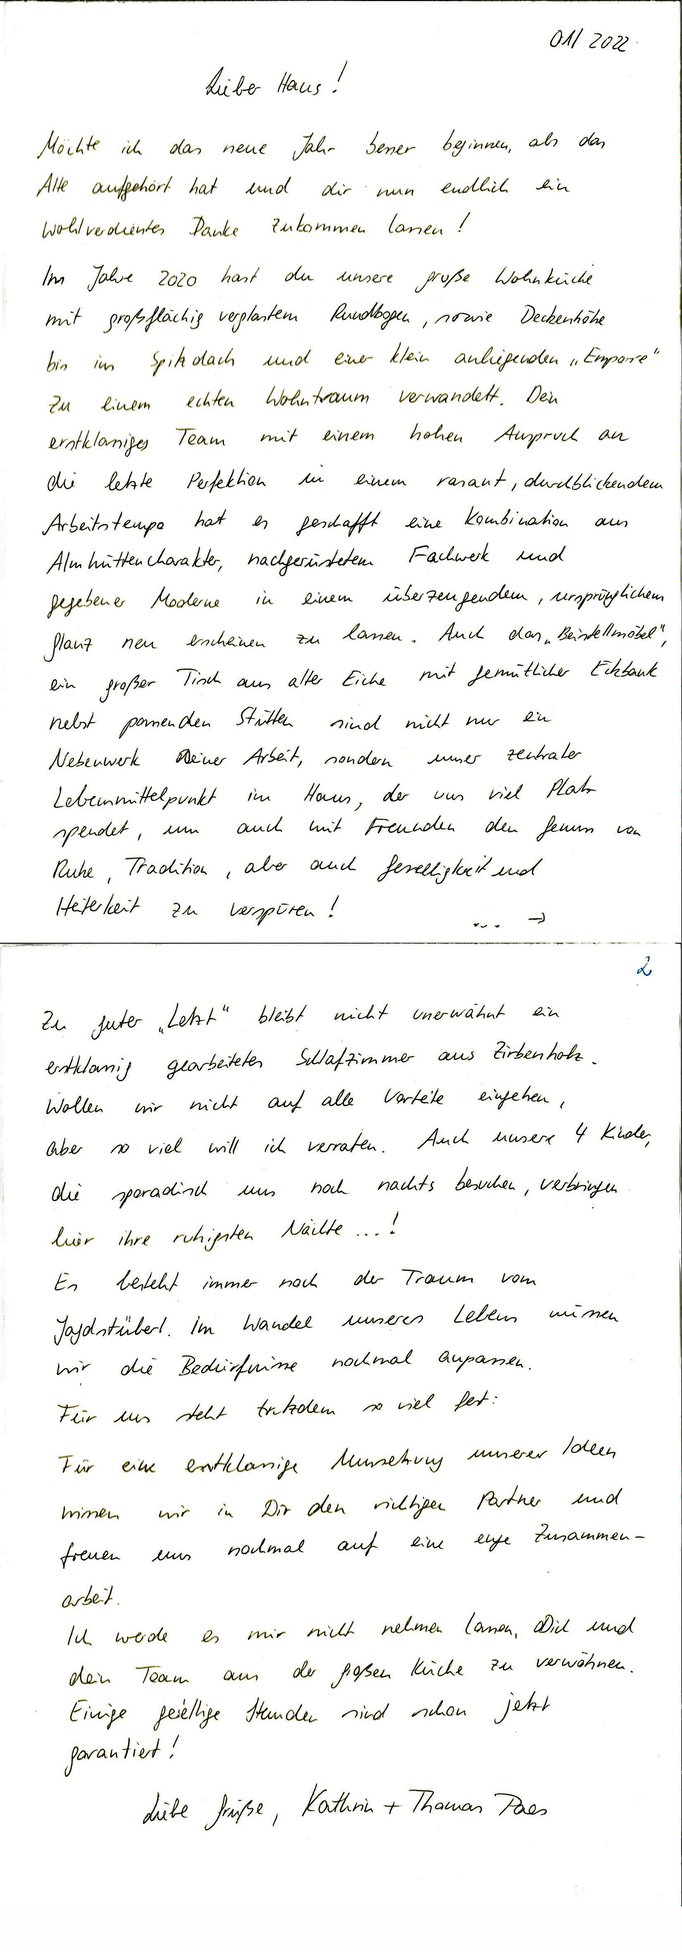 01/2022
Lieber Hans!
Möchte ich das neue Jahr besser beginnen, als das
Alte aufgehört hat und dir nun endlich ein
wohlverdientes Danke zukommen lassen!
Im Jahre 2020 hast du unsere große Wohnküche
mit großflächig verglastem Rundbogen, sowie Deckenhöhe
bis ins Spitzdach und einer klein anliegenden „Empore"
zu einem echten Wohntraum verwandelt. Dein
erstklassiges Team mit einem hohen Anspruch an
die letzte Perfektion in einem rasant, durchblickendem
Arbeitstempo hat es geschafft eine Kombination aus
Almhüttencharakter, nachgerüstetem Fachwerk und
gegebener Moderne in einem überzeugendem, ursprünglichem
Glanz neu erscheinen zu lassen. Auch das „Beistellmöbel",
ein großer Tisch aus alter Eiche mit gemütlicher Eckbank
nebst passenden Stühlen sind nicht nur ein
Nebenwerk Deiner Arbeit, sondern unser zentraler
Lebensmittelpunkt im Haus, der uns viel Platz
spendet, um auch mit Freunden den Genuss von
Ruhe, Tradition, aber auch Geselligkeit und
Heiterkeit zu verspüren!
... →
2
Zu guter „Letzt" bleibt nicht unerwähnt ein
erstklassig gearbeitetes Schlafzimmer aus Zirbenholz.
Wollen wir nicht auf alle Vorteile eingehen,
aber so viel will ich verraten. Auch unsere 4 Kinder,
die sporadisch uns noch nachts besuchen, verbringen
hier ihre ruhigsten Nächte ...!
Es besteht immer noch der Traum vom
Jagdstüberl. Im Wandel unseres Lebens müssen
wir die Bedürfnisse nochmal anpassen.
Für uns steht trotzdem so viel fest:
Für eine erstklassige Umsetzung unserer Ideen
wissen wir in Dir den richtigen Partner und
freuen uns nochmal auf eine enge Zusammen-
arbeit.
Ich werde es mir nicht nehmen lassen, Dich und
dein Team aus der großen Küche zu verwöhnen.
Einige gesellige Stunden sind schon jetzt
garantiert!
Liebe Grüße, Kathrin + Thomas Paes